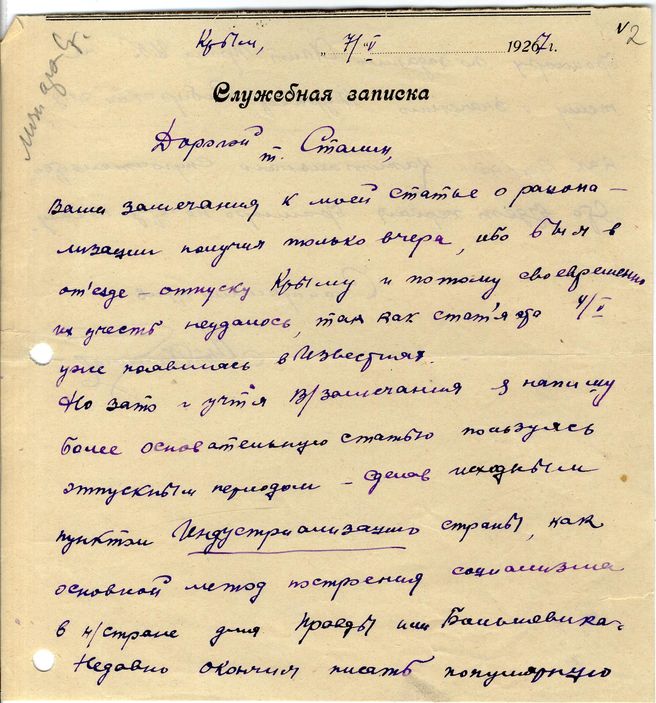 2
Крым, "7/V 1926 7 г.
Служебная записка
Дорогой т. Сталин,
Ваши замечания к моей статье о рациона-
лизации получил только вчера, ибо был в
от'езде отпуску Крыму и потому своевременно
их учесть неудалось, так как стат'я эта 4/V
уже появилась в Известиях.
Но зато учтя В/замечания я напишу
более основательную статью пользуясь
отпускным периодом – сделав исходным
пунктом Индустриализацию страны, как
основной метод построения социализма
в н/стране для Правды или Большевика.
Недавно окончил писать популярную